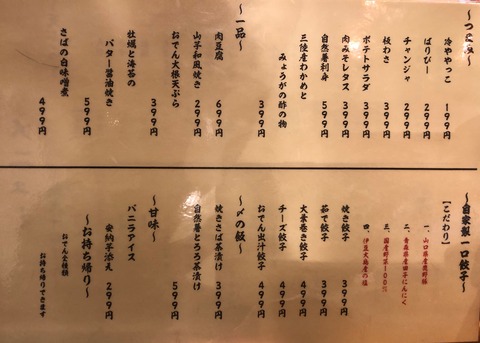 冷ややっこ 199円
ぱりぴー 299円
チャンジャ 299円
板わさ 399円
ポテトサラダ 399円
肉みそレタス 399円
自然薯刺身 599円
三陸産わかめと
みょうがの酢の物 399円
～一品～
肉豆腐 699円
山芋和風焼き 299円
おでん大根天ぷら 399円
牡蠣と海苔の
バター醤油焼き 599円
さばの白味噌煮 499円
～自家製一口餃子～
【こだわり】
一、山口県産鹿野豚
二、青森県産田子にんにく
三、国産野菜100%
四、伊豆大島産の塩
焼き餃子 399円
茹で餃子 399円
大葉巻き餃子 499円
チーズ餃子 499円
おでん出汁餃子 499円
～〆の飯～
焼きさば茶漬け 399円
自然薯とろろ茶漬け 599円
～甘味～
バニラアイス
安納芋添え 299円
～お持ち帰り～
おでん全種類
お持ち帰りできます